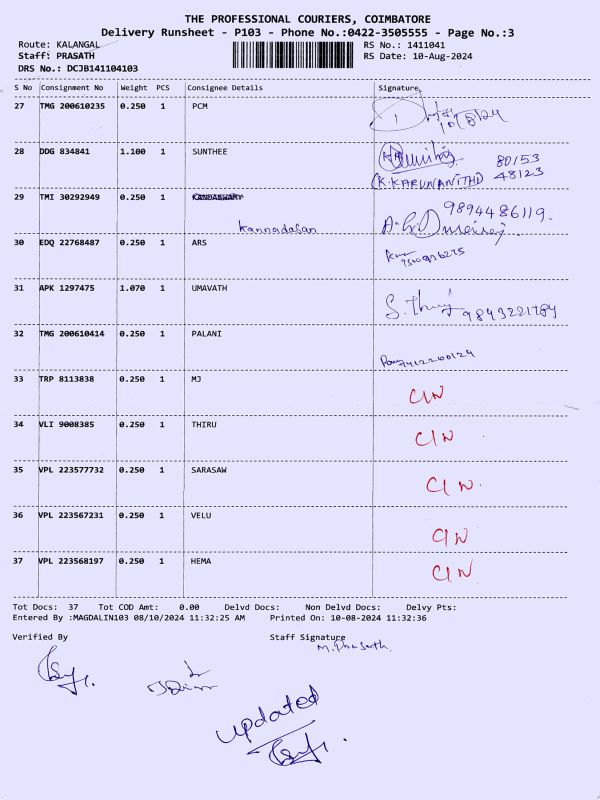 THE PROFESSIONAL COURIERS, COIMBATORE
Delivery Runsheet - P103 - Phone No.:0422-3505555 - Page No.:3
Route: KALANGAL RS No.: 1411041
Staff: PRASATH RS Date: 10-Aug-2024
DRS No.: DCJB141104103
S No Consignment No Weight PCS Consignee Details Signature
27 TMG 200610235 0.250 1 PCM
10/8/24
28 DDG 834841 1.100 1 SUNTHEE
80153
(K.KARUNANITHI) 48123
29 TMI 30292949 0.250 1 KANDASWAMY
9894486119.
Kannadasan
30 EDQ 22768487 0.250 1 ARS
31 APK 1297475 1.070 1 UMAVATH
9843221784
32 TMG 200610414 0.250 1 PALANI
33 TRP 8113838 0.250 1 MJ
CIN
34 VLI 9008385 0.250 1 THIRU
CIN
35 VPL 223577732 0.250 1 SARASAW
CIN.
36 VPL 223567231 0.250 1 VELU
CIN
37 VPL 223568197 0.250 1 HEMA
CIN.
Tot Docs: 37 Tot COD Amt: 0.00 Delvd Docs: Non Delvd Docs: Delvy Pts:
Entered By :MAGDALIN103 08/10/2024 11:32:25 AM Printed On: 10-08-2024 11:32:36
Verified By Staff Signature
M.Prasath.
updated